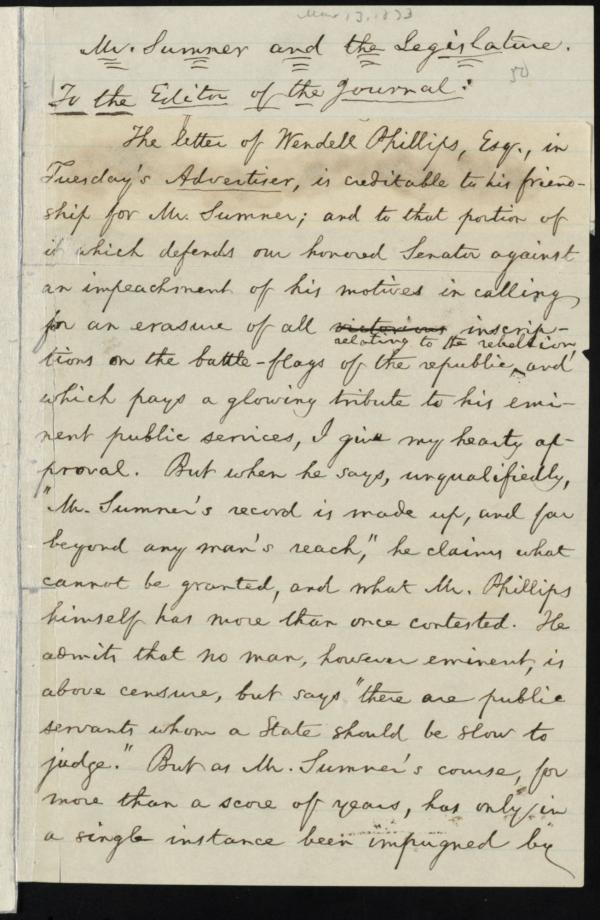 Mar 13, 1873
Mr. Sumner and the Legislature.
50
To the Editor of the Journal:
The letter of Wendell Phillips, Esq., in
Tuesday's Advertiser, is creditable to his friend-
ship for Mr. Sumner; and to that portion of
it which defends our honored Senator against
an impeachment of his motives in calling
for an erasure of all victorious inscrip-
relating to the rebellion,
tions on the battle-flags of the republic, and
which pays a glowing tribute to his emi-
nent public services, I give my hearty ap-
proval. But when he says, unqualifiedly,
"Mr. Sumner's record is made up, and far
beyond any man's reach," he claims what
cannot be granted, and what Mr. Phillips
himself has more than once contested. He
admits that no man, however eminent, is
above censure, but says "there are public
servants whom a State should be slow to
judge." But as Mr. Sumner's course, for
more than a score of years, has only in
a single instance been impugned by